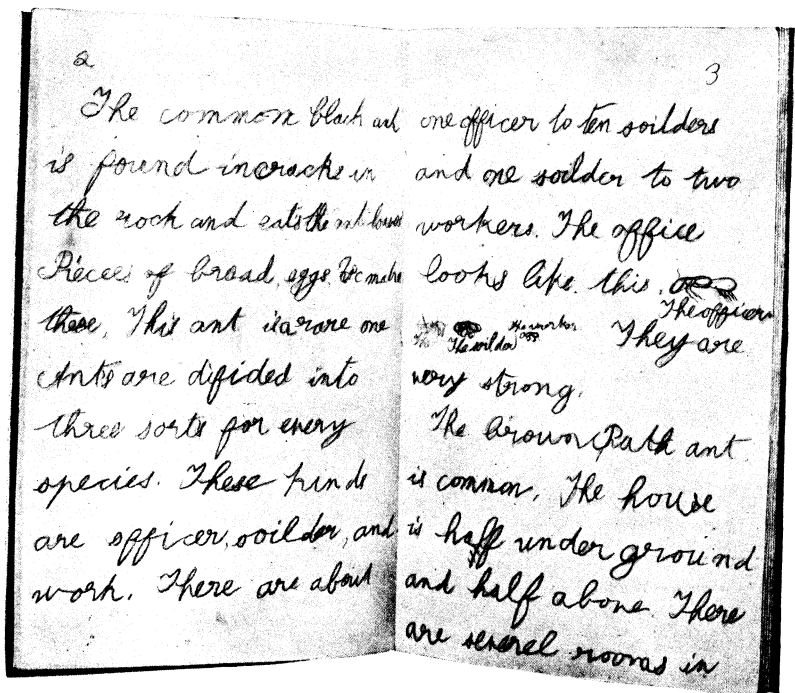 2
The common black ant
is found in cracks in
the rock and eats the
Pieces of bread, eggs, &c make
these. This ant is a rare one
Ants are difided into
three sorts for every
species. These kinds
are officer, soilder, and
work. There are about
3
one officer to ten soilders
and one soilder to two
workers. The office
looks like this.
The officer
The soilder The worker
They are
very strong.
The brown Path ant
is common. The house
is half under ground
and half above. There
are severel rooms in